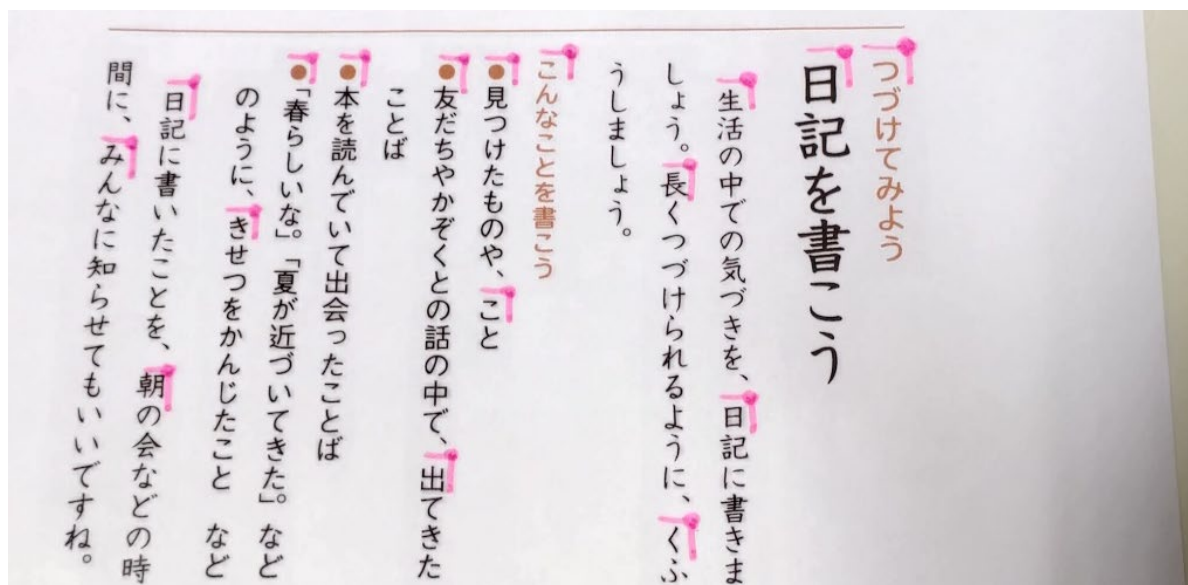 つづけてみよう
日記を書こう
生活の中での気づきを、日記に書きま
しょう。長くつづけられるように、くふ
うしましょう。
こんなことを書こう
●見つけたものや、こと
●友だちやかぞくとの話の中で、出てきた
ことば
●本を読んでいて出会ったことば
●「春らしいな。」「夏が近づいてきた。」など
のように、きせつをかんじたこと など
日記に書いたことを、朝の会などの時
間に、みんなに知らせてもいいですね。